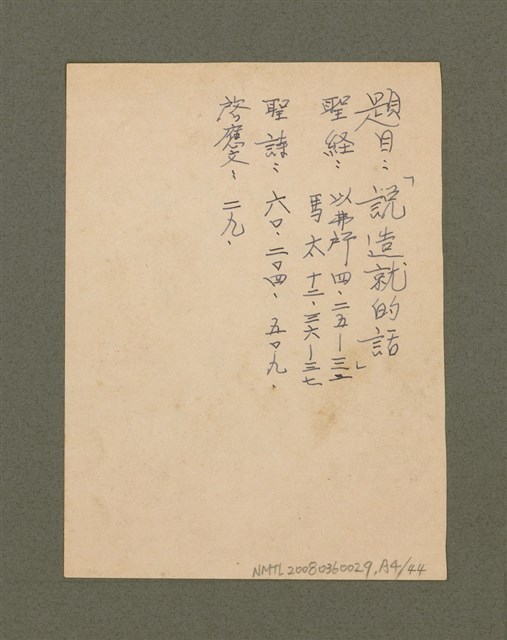 題目：「説造就的話」
聖経：以弗所 四、二五－三二
馬太 十二、三六－三七
聖詩：六〇、二〇四、五〇九、
啓應文、二九、
NMTL20080360029,A4/44